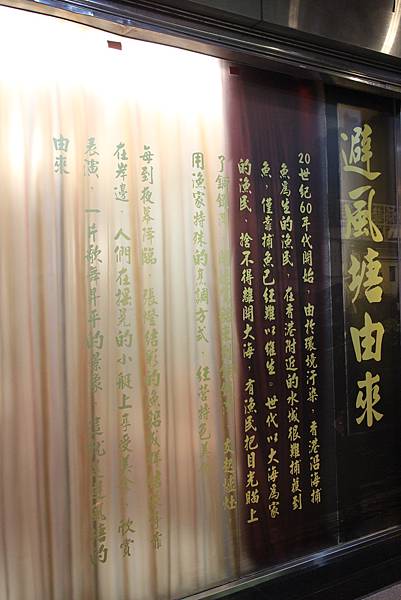 避風塘由來
20世紀60年代開始，由於環境汙染，香港沿海捕
魚為生的漁民，在香港附近的水域很難捕獲到
魚，僅靠捕魚已經難以維生。世代以大海為家
的漁民，捨不得離開大海，有漁民把目光瞄上
了
用漁家特殊的烹調方式，經營特色美
每到夜幕降臨，張燈結彩的漁船
在岸邊，人們在搖晃的小艇上享受美食，欣賞
表演，一片歌舞昇平的景象，這就是避風塘的
由來